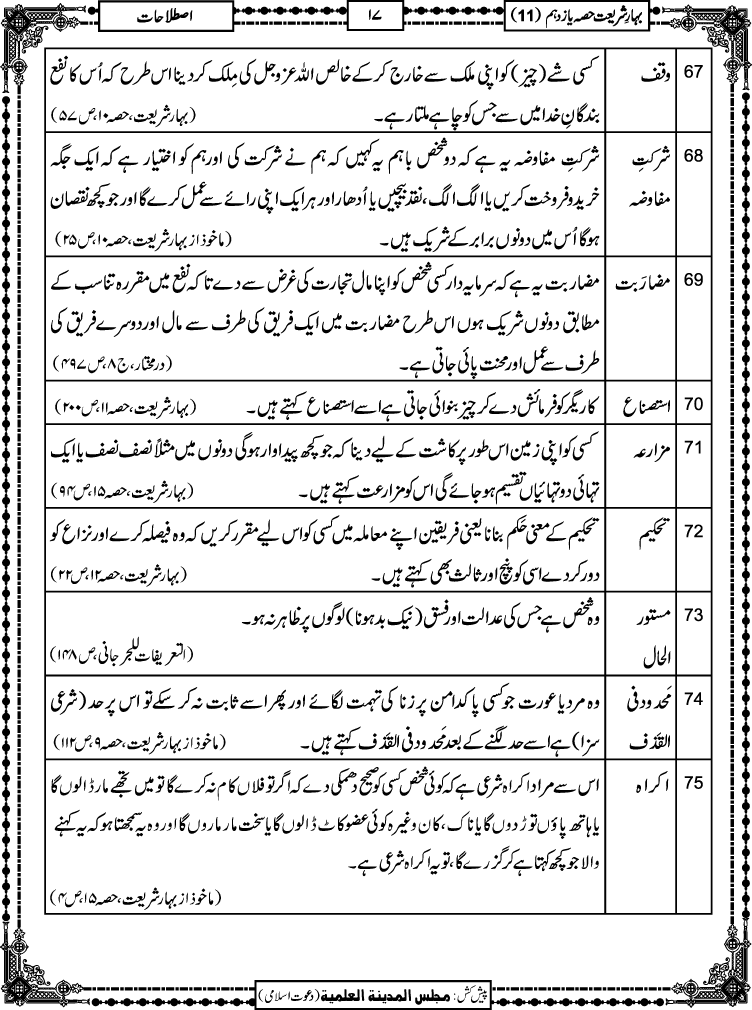 بہارِ شریعت حصہ یازدہم (11)
۱۷
اصطلاحات
67 وقف کسی شے (چیز) کو اپنی ملک سے خارج کر کے خالص اللہ عزوجل کی مِلک کر دینا اس طرح کہ اُس کا نفع
بندگانِ خدا میں سے جس کو چاہے ملتا رہے۔ (بہار شریعت، حصہ ۱۰، ص ۵۷)
68 شرکتِ شرکتِ مفاوضہ یہ ہے کہ دو شخص باہم یہ کہیں کہ ہم نے شرکت کی اور ہم کو اختیار ہے کہ ایک جگہ
مفاوضہ خرید و فروخت کریں یا الگ الگ، نقد بیچیں یا اُدھار اور ہر ایک اپنی رائے سے عمل کرے گا اور جو کچھ نقصان
ہوگا اُس میں دونوں برابر کے شریک ہیں۔ (ماخوذ از بہار شریعت، حصہ ۱۰، ص ۲۵)
69 مضارَبت مضاربت یہ ہے کہ سرمایہ دار کسی شخص کو اپنا مال تجارت کی غرض سے دے تاکہ نفع میں مقررہ تناسب کے
مطابق دونوں شریک ہوں اس طرح مضاربت میں ایک فریق کی طرف سے مال اور دوسرے فریق کی
طرف سے عمل اور محنت پائی جاتی ہے۔ (درمختار، ج ۸، ص ۴۹۷)
70 استصناع کاریگر کو فرمائش دے کر چیز بنوائی جاتی ہے اسے استصناع کہتے ہیں۔ (بہار شریعت، حصہ ۱۱، ص ۲۰۰)
71 مزارعہ کسی کو اپنی زمین اس طور پر کاشت کے لیے دینا کہ جو کچھ پیداوار ہوگی دونوں میں مثلاً نصف نصف یا ایک
تہائی دو تہائیاں تقسیم ہو جائے گی اس کو مزارعت کہتے ہیں۔ (بہار شریعت، حصہ ۱۵، ص ۹۴)
72 تحکیم تحکیم کے معنی حَکم بنانا یعنی فریقین اپنے معاملہ میں کسی کو اس لیے مقرر کریں کہ وہ فیصلہ کرے اور نزاع کو
دور کر دے اسی کو پنچ اور ثالث بھی کہتے ہیں۔ (بہار شریعت، حصہ ۱۲، ص ۲۲)
73 مستور وہ شخص ہے جس کی عدالت اور فسق (نیک بد ہونا) لوگوں پر ظاہر نہ ہو۔
الحال (التعریفات للجرجانی، ص ۱۴۸)
74 مَحدود فی وہ مرد یا عورت جو کسی پاکدامن پر زنا کی تہمت لگائے اور پھر اسے ثابت نہ کر سکے تو اس پر حد (شرعی
القَذَف سزا) ہے اسے حد لگنے کے بعد مَحدود فی القذف کہتے ہیں۔ (ماخوذ از بہار شریعت، حصہ ۹، ص ۱۱۲)
75 اکراہ اس سے مراد اکراہ شرعی ہے کہ کوئی شخص کسی کو صحیح دھمکی دے کہ اگر تو فلاں کام نہ کرے گا تو میں تجھے مار ڈالوں گا
یا ہاتھ پاؤں توڑ دوں گا یا ناک، کان وغیرہ کوئی عضو کاٹ ڈالوں گا یا سخت مار ماروں گا اور وہ یہ سمجھتا ہو کہ یہ کہنے
والا جو کچھ کہتا ہے کر گزرے گا، تو یہ اکراہ شرعی ہے۔
(ماخوذ از بہار شریعت، حصہ ۱۵، ص ۴)
پیش کش: مجلس المدینۃ العلمیۃ (دعوت اسلامی)